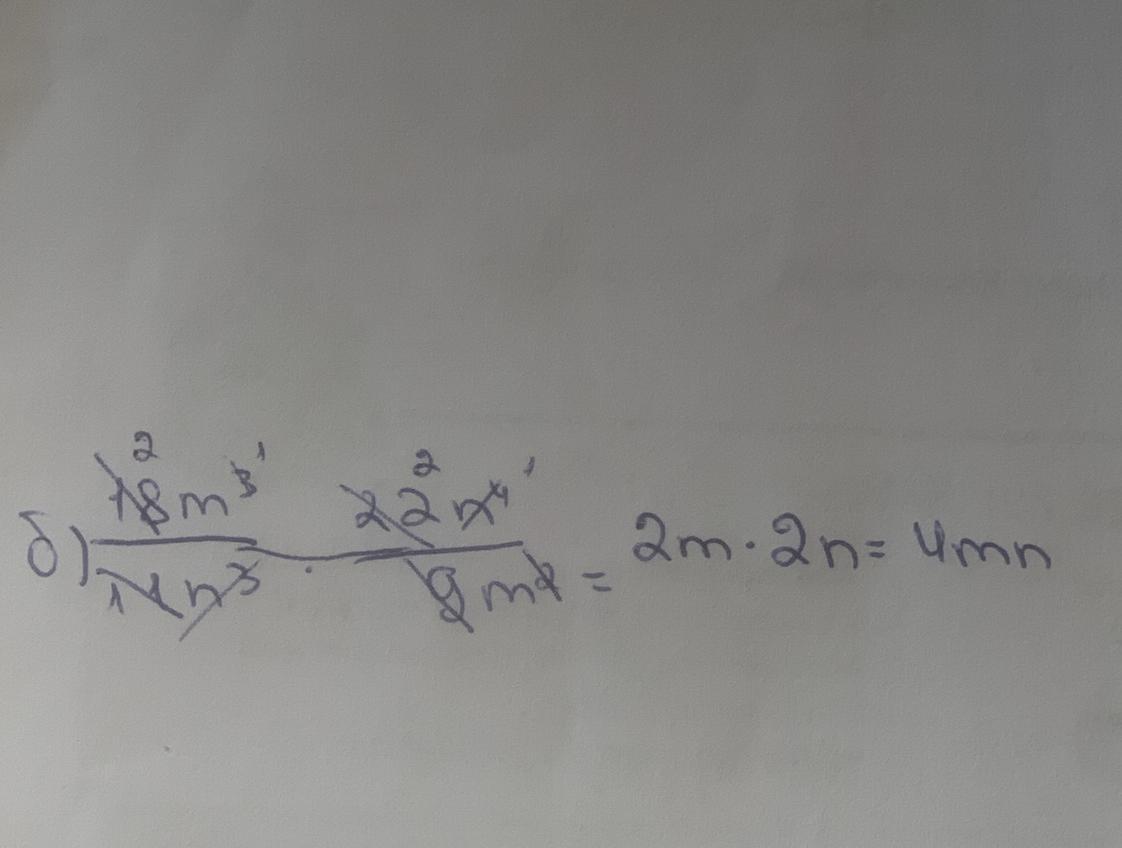 б) 18² m³ ¹ / 11 n³ · 22² n⁴ ¹ / 9 m² = 2m · 2n = 4mn